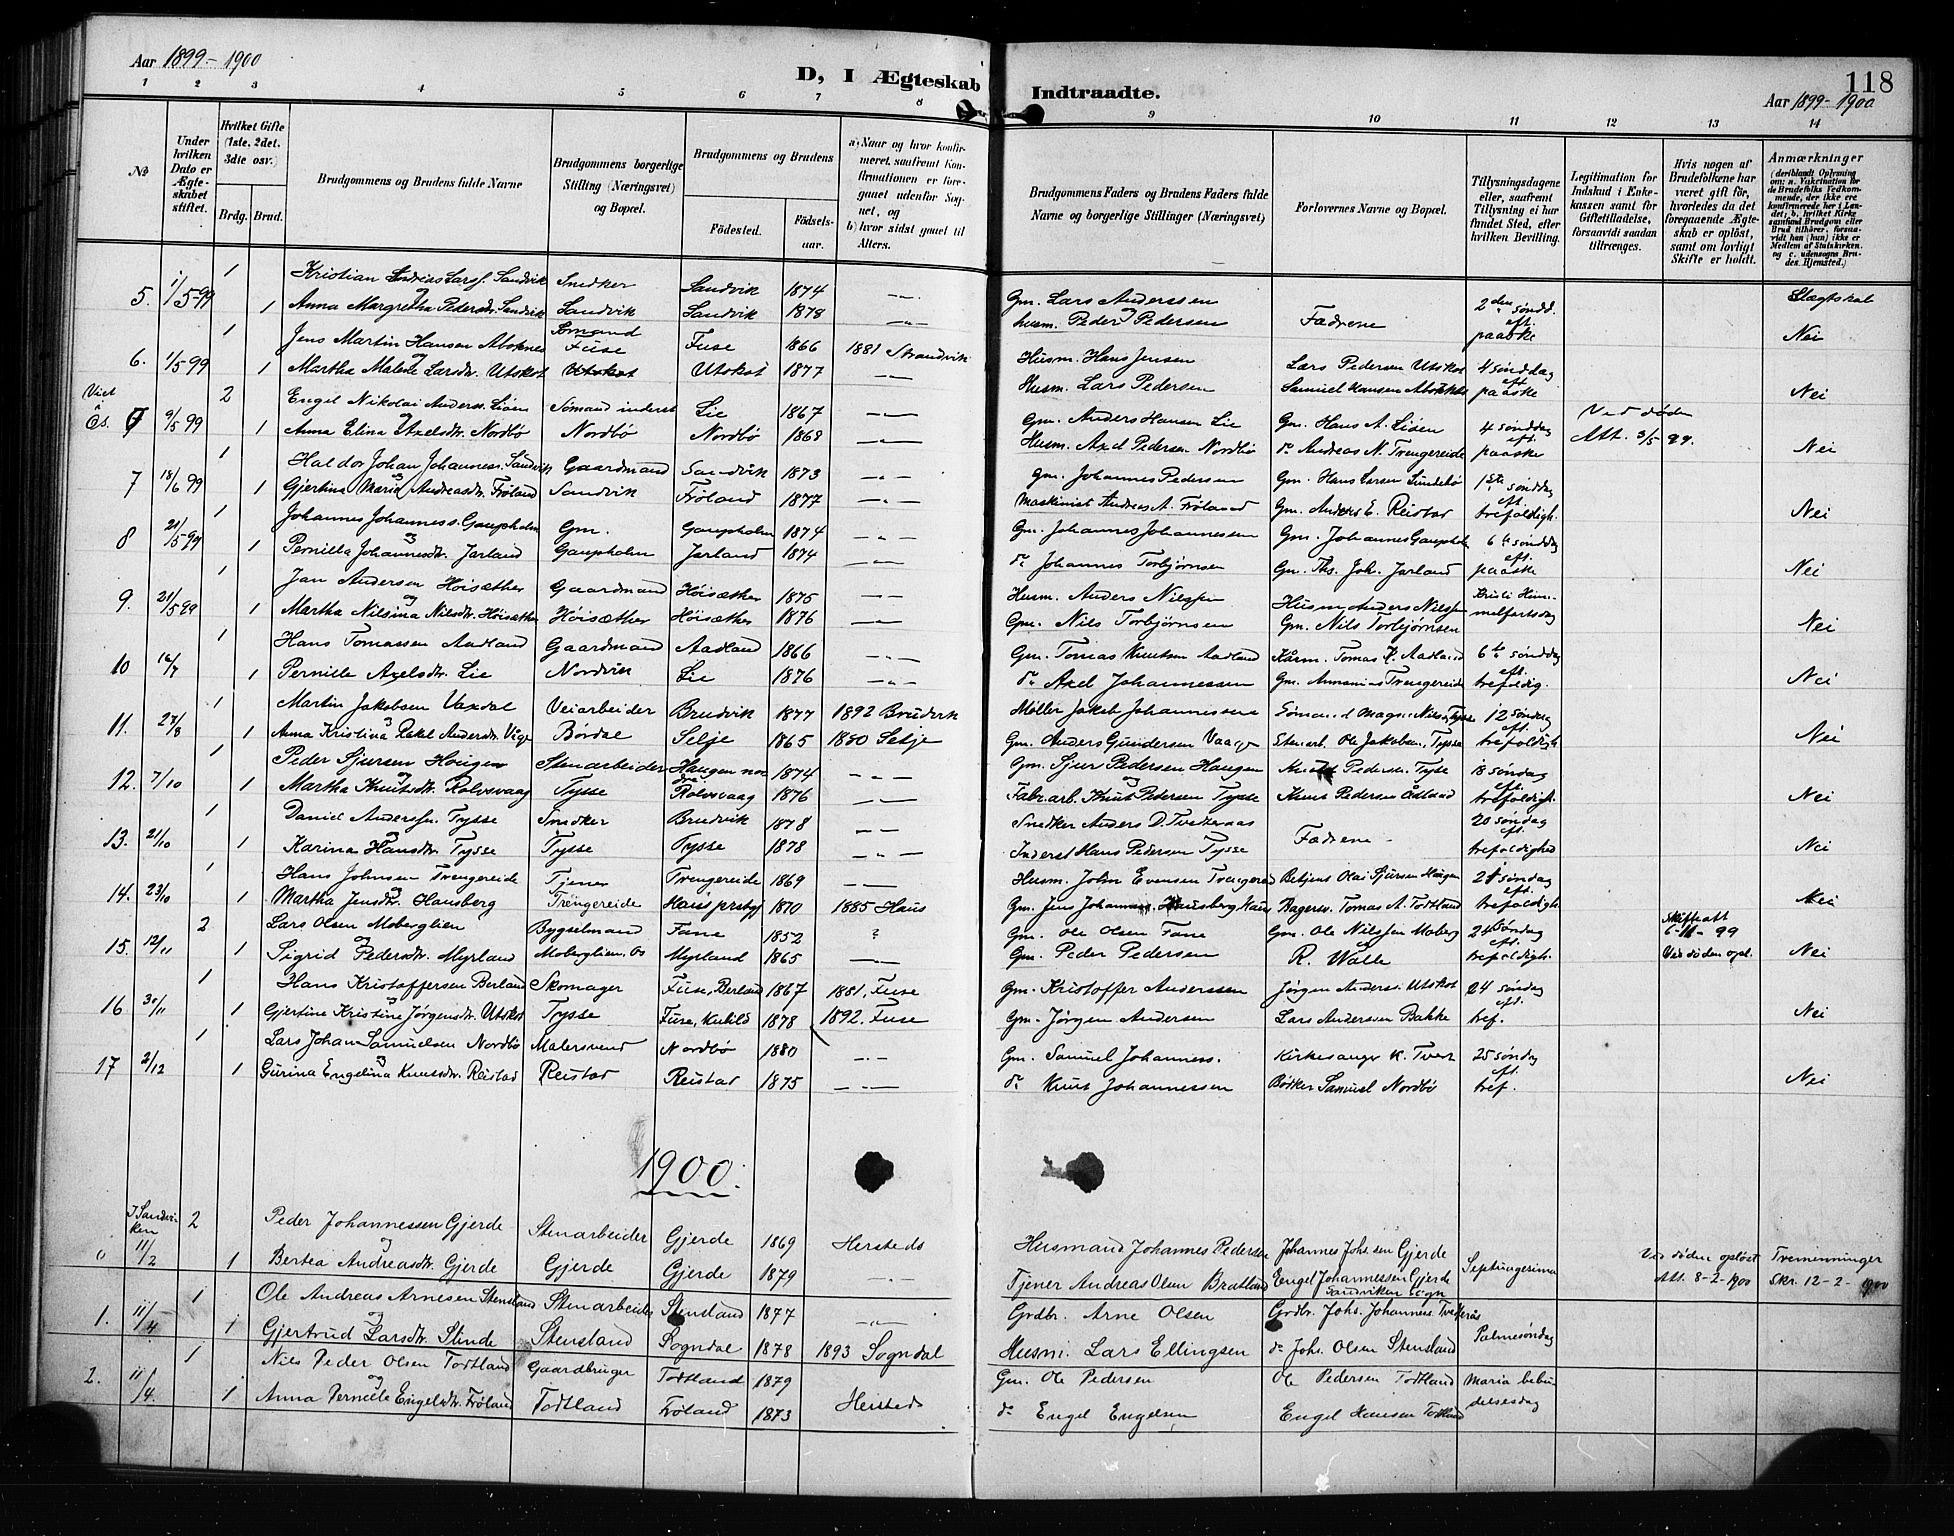 Aar 1899-1900
D, I Ægteskab Indtraadte.
118
Aar 1899-1900
1 2 3 4 5 6 7 8 9 10 11 12 13 14
№
Under hvilken Dato er Ægteskabet stiftet.
Hvilket Gifte (1ste, 2det, 3die osv.)
Brdg. Brud.
Brudgommens og Brudens fulde Navne
Brudgommens borgerlige Stilling (Næringsvei) og Bopæl.
Brudgommens og Brudens
Fødested. Fødselsaar.
a) Naar og hvor konfirmeret, saafremt Konfirmationen er foregaaet udenfor Sognet, og b) hvor sidst gaaet til Alters.
Brudgommens Faders og Brudens Faders fulde Navne og borgerlige Stillinger (Næringsvei)
Forlovernes Navne og Bopæl.
Tillysningsdagene eller, saafremt Tillysning ei har fundet Sted, efter hvilken Bevilling.
Legitimation for Indskud i Enkekassen samt for Giftetilladelse, forsaavidt saadan tiltrænges.
Hvis nogen af Brudefolkene har været gift før, hvorledes da det foregaaende Ægteskab er opløst, samt om lovligt Skifte er holdt.
Anmærkninger (deriblandt Oplysning om: a. Vakcination for de Brudefolks Vedkommende, der ikke ere konfirmerede her i Landet; b. hvilket Kirkesamfund Brudgom eller Brud tilhører, forsaavidt han (hun) ikke er Medlem af Statskirken, og c. udensogns Brudes Hjemsted.)
1 Kristian Andreas Larss. Sandvik Snedker Sandvik 1874 -"- Gm. Lars Anderssen 2den søndd. Slægtskab
5. 1/5-99 og
1 Anna Margretha Pedersdr. Sandvik Sandvik Sandvik 1878 -"- Husm. Peder Pedersen Fædrene eft. paaske Nei
1 Jens Martin Hansen Aboknes Sømand Fuse Fuse 1866 1881 Strandvik Husm. Hans Jensen Lars Pedersen Utskot 4 sønddag
6. 1/5 99 og
1 Martha Malene Larsdr. Utskot Utskot Utskot 1877 -"- Husm. Lars Pedersen Samuel Hansen eft. paaske Nei
Viet i Os.
2 Engel Nikolai Anderss. Lien Sømand inderst Lie 1867 -"- Gm. Anders Hansen Lie Gm. Hans A. Lien 4 sønddag Ved døden
9/5 99 og
1 Anna Elina Axelsdr. Nordbø Nordbø Nordbø 1868 -"- Husm. Axel Pedersen Nordbø do Andreas N. Trengereide eft. paaske Att. 3/5 99. Nei
1 Haldor Johan Johanness. Sandvik Gaardmand Sandvik 1873 -"- Gm. Johannes Pedersen Gm. Hans Larsen Sundebø 1ste sønddag
7 18/6 99 og
1 Gjertina Maria Andreasdr. Frøland Sandvik Frøland 1877 -"- Maskinist Andreas A. Frøland Gm. Anders E. Reistad eft. trefoldigh. Nei
1 Johannes Johanness. Gaupholm Gm. Gaupholm 1874 -"- Gm. Johannes Johannessen Gm. Johannes Gaupholm 6te sønddag
8 21/5-99 og
1 Pernilla Johannesdr. Jarland Gaupholm Jarland 1874 -"- do Johannes Torbjørnsen Gm. Ths. Joh. Jarland eft. paaske Nei
1 Jan Andersen Høisæther Gaardmand Høisæther 1875 -"- Husm. Anders Nilssen Husm Anders Nilssen Kristi Him-
9. 21/5 99 og
1 Martha Nilsina Nilsdr. Høisæther Høisæther Høisæther 1876 -"- Gm. Nils Torbjørnsen Gm. Nils Torbjørnsen melfartsdag Nei
1 Hans Tomassen Aadland Gaardmand Aadland 1866 -"- Gm. Tomas Knutsen Aadland Kårm. Tomas K. Aadland 6te sønddag
10 16/7
1 Pernille Axelsdr. Lie Nordvik Lie 1876 -"- do Axel Johannessen Gm. Annanias Trengereide eft. trefoldig. Nei
1 Martin Jakobsen Vaxdal Veiarbeider Brudvik 1877 1892 Brudvik Møller Jakob Johannessen Sømand Magne Nilsen Tysse 12 søndag
11. 27/8 og
1 Anna Kristina Rakel Andersdr. Våge Børdal Selje 1865 1880 Selje Gm. Anders Gundersen Vaage Stenarb. Ole Jakobsen, Tysse eft. trefoldigh Nei
1 Peder Sjursen Hougen Stenarbeider Haugen nordre 1874 -"- Gm. Sjur Pedersen Haugen Knut Pedersen Tysse 18 søndag
12. 7/10 og
1 Martha Knutsdr. Rolvsvaag Tysse Rolvsvaag 1876 -"- Fabr. arb. Knut Pedersen Tysse Knut Pedersen Ådland eft. trefoldigh. Nei
1 Daniel Anderssen Tysse Snedker Brudvik 1878 -"- Snedker Anders D. Tvedteraas Fædrene 20 søndag
13. 21/10 og
1 Karina Hansdr. Tysse Tysse Tysse 1878 -"- Inderst Hans Pedersen Tysse eft. trefoldighed Nei
1 Hans Johnsen Trengereide Tjener Trengereide 1869 -"- Husm. John Evensen Trengereid Betjent Olai Sjursen Haugen 21 søndag
14. 23/10 og
1 Martha Jensdr. Hausberg Trengereide Haus prstgj 1870 1885 Haus Gm. Jens Johannes. Hausberg Haus Bagersv. Tomas A. Todtland eft. trefoldigh Nei
2 Lars Olsen Moberglien Bygselmand Fane 1852 ? Gm. Ole Olsen Fane Gm. Ole Nilssen Moberg 24 søndag Skifteatt 6-11-99
15. 12/11 og
1 Sigrid Pedersdr. Myrland Moberglien, Os Myrland 1865 -"- Gm. Peder Pedersen R. Walle eft. trefoldigh. Ved døden opl. Nei
1 Hans Kristoffersen Berland Skomager Fuse, Berland 1867 1881, Fuse Gm. Kristoffer Anderssen Jørgen Anderss. Utskot 24 søndag
16 30/11 og
1 Gjertine Kristine Jørgensdr. Utskot Tysse Fuse, Kubild 1878 1892. Fuse Gm. Jørgen Andersen Lars Anderssen Bakke eft. tref. Nei
1 Lars Johan Samuelsen Nordbø Malersvend Nordbø 1880 -"- Gm. Samuel Johanness. Kirkesanger K. Tvert 25 søndag
17 2/12 og
1 Gurina Engelina Knutsdr. Reistad Reistad Reistad 1875 -"- do Knut Johannessen Bødker Samuel Nordbø eft. tref. Nei
1900.
I Sandviken
2 Peder Johannessen Gjerde Stenarbeider Gjerde 1869 Hersteds Husmand Johannes Pedersen Johannes Johs.sen Gjerde Septuagesima Ved døden opløst Tremenninger
" 11/2 og
1 Bertea Andreasdr. Gjerde Gjerde Gjerde 1879 -"- Tjener Andreas Olsen Bratland Engel Johannessen Gjerde Sandviken sogn Att. 8-2-1900 Skr. 12-2-1900
1 Ole Andreas Arnesen Stensland Stenarbeider Stensland 1877 -"- Grdbr. Arne Olsen Grdbr. Johs. Johannes. Tvedterås
1. 11/4 og
1 Gjertrud Larsdtr. Slinde Stensland Sogndal 1878 1893 Sogndal Husm. Lars Ellingsen do Johs. Olsen Stensland Palmesøndag
1 Nils Peder Olsen Todtland Gaardbruger Todtland 1879 Hersteds Gm. Ole Pedersen Ole Pedersen Todtland Maria bebu-
2. 11/4. og
1 Anna Pernille Engelsdtr. Frøland Todtland Frøland 1873 do Engel Engelsen Engel Hansen Todtland delsesdag